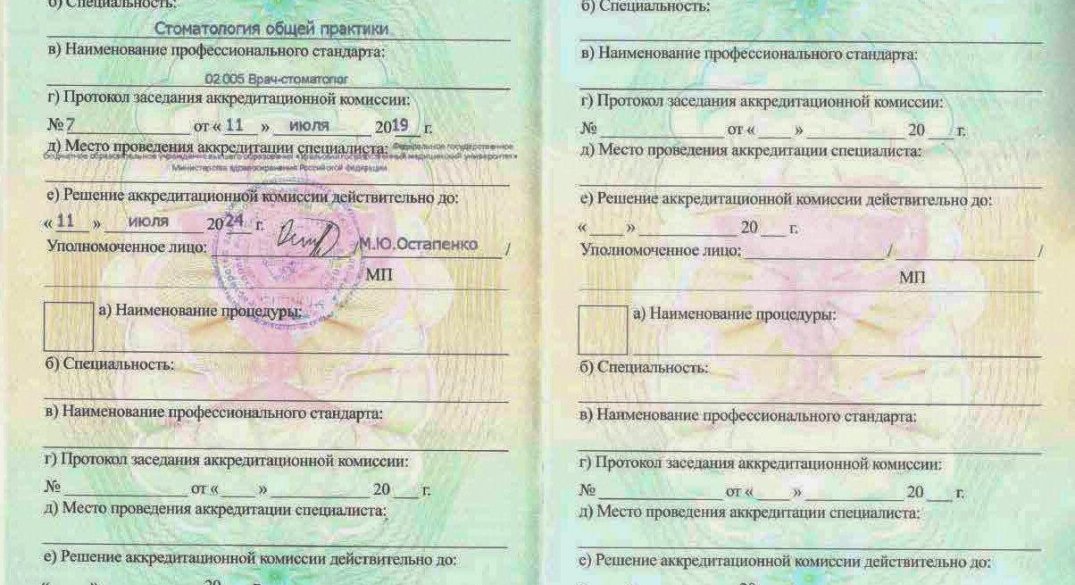 б) Специальность:
Стоматология общей практики
в) Наименование профессионального стандарта:
02.005 Врач-стоматолог
г) Протокол заседания аккредитационной комиссии:
№ 7 от « 11 » июля 2019 г.
д) Место проведения аккредитации специалиста: Федеральное государственное
бюджетное образовательное учреждение высшего образования «Уральский государственный медицинский университет»
Министерства здравоохранения Российской Федерации
е) Решение аккредитационной комиссии действительно до:
« 11 » июля 2024 г.
Уполномоченное лицо: М.Ю.Остапенко /
МП
а) Наименование процедуры:
б) Специальность:
в) Наименование профессионального стандарта:
г) Протокол заседания аккредитационной комиссии:
№ от « » 20 г.
д) Место проведения аккредитации специалиста:
е) Решение аккредитационной комиссии действительно до:
« » 20 г.
б) Специальность:
в) Наименование профессионального стандарта:
г) Протокол заседания аккредитационной комиссии:
№ от « » 20 г.
д) Место проведения аккредитации специалиста:
е) Решение аккредитационной комиссии действительно до:
« » 20 г.
Уполномоченное лицо: / /
МП
а) Наименование процедуры:
б) Специальность:
в) Наименование профессионального стандарта:
г) Протокол заседания аккредитационной комиссии:
№ от « » 20 г.
д) Место проведения аккредитации специалиста:
е) Решение аккредитационной комиссии действительно до:
20